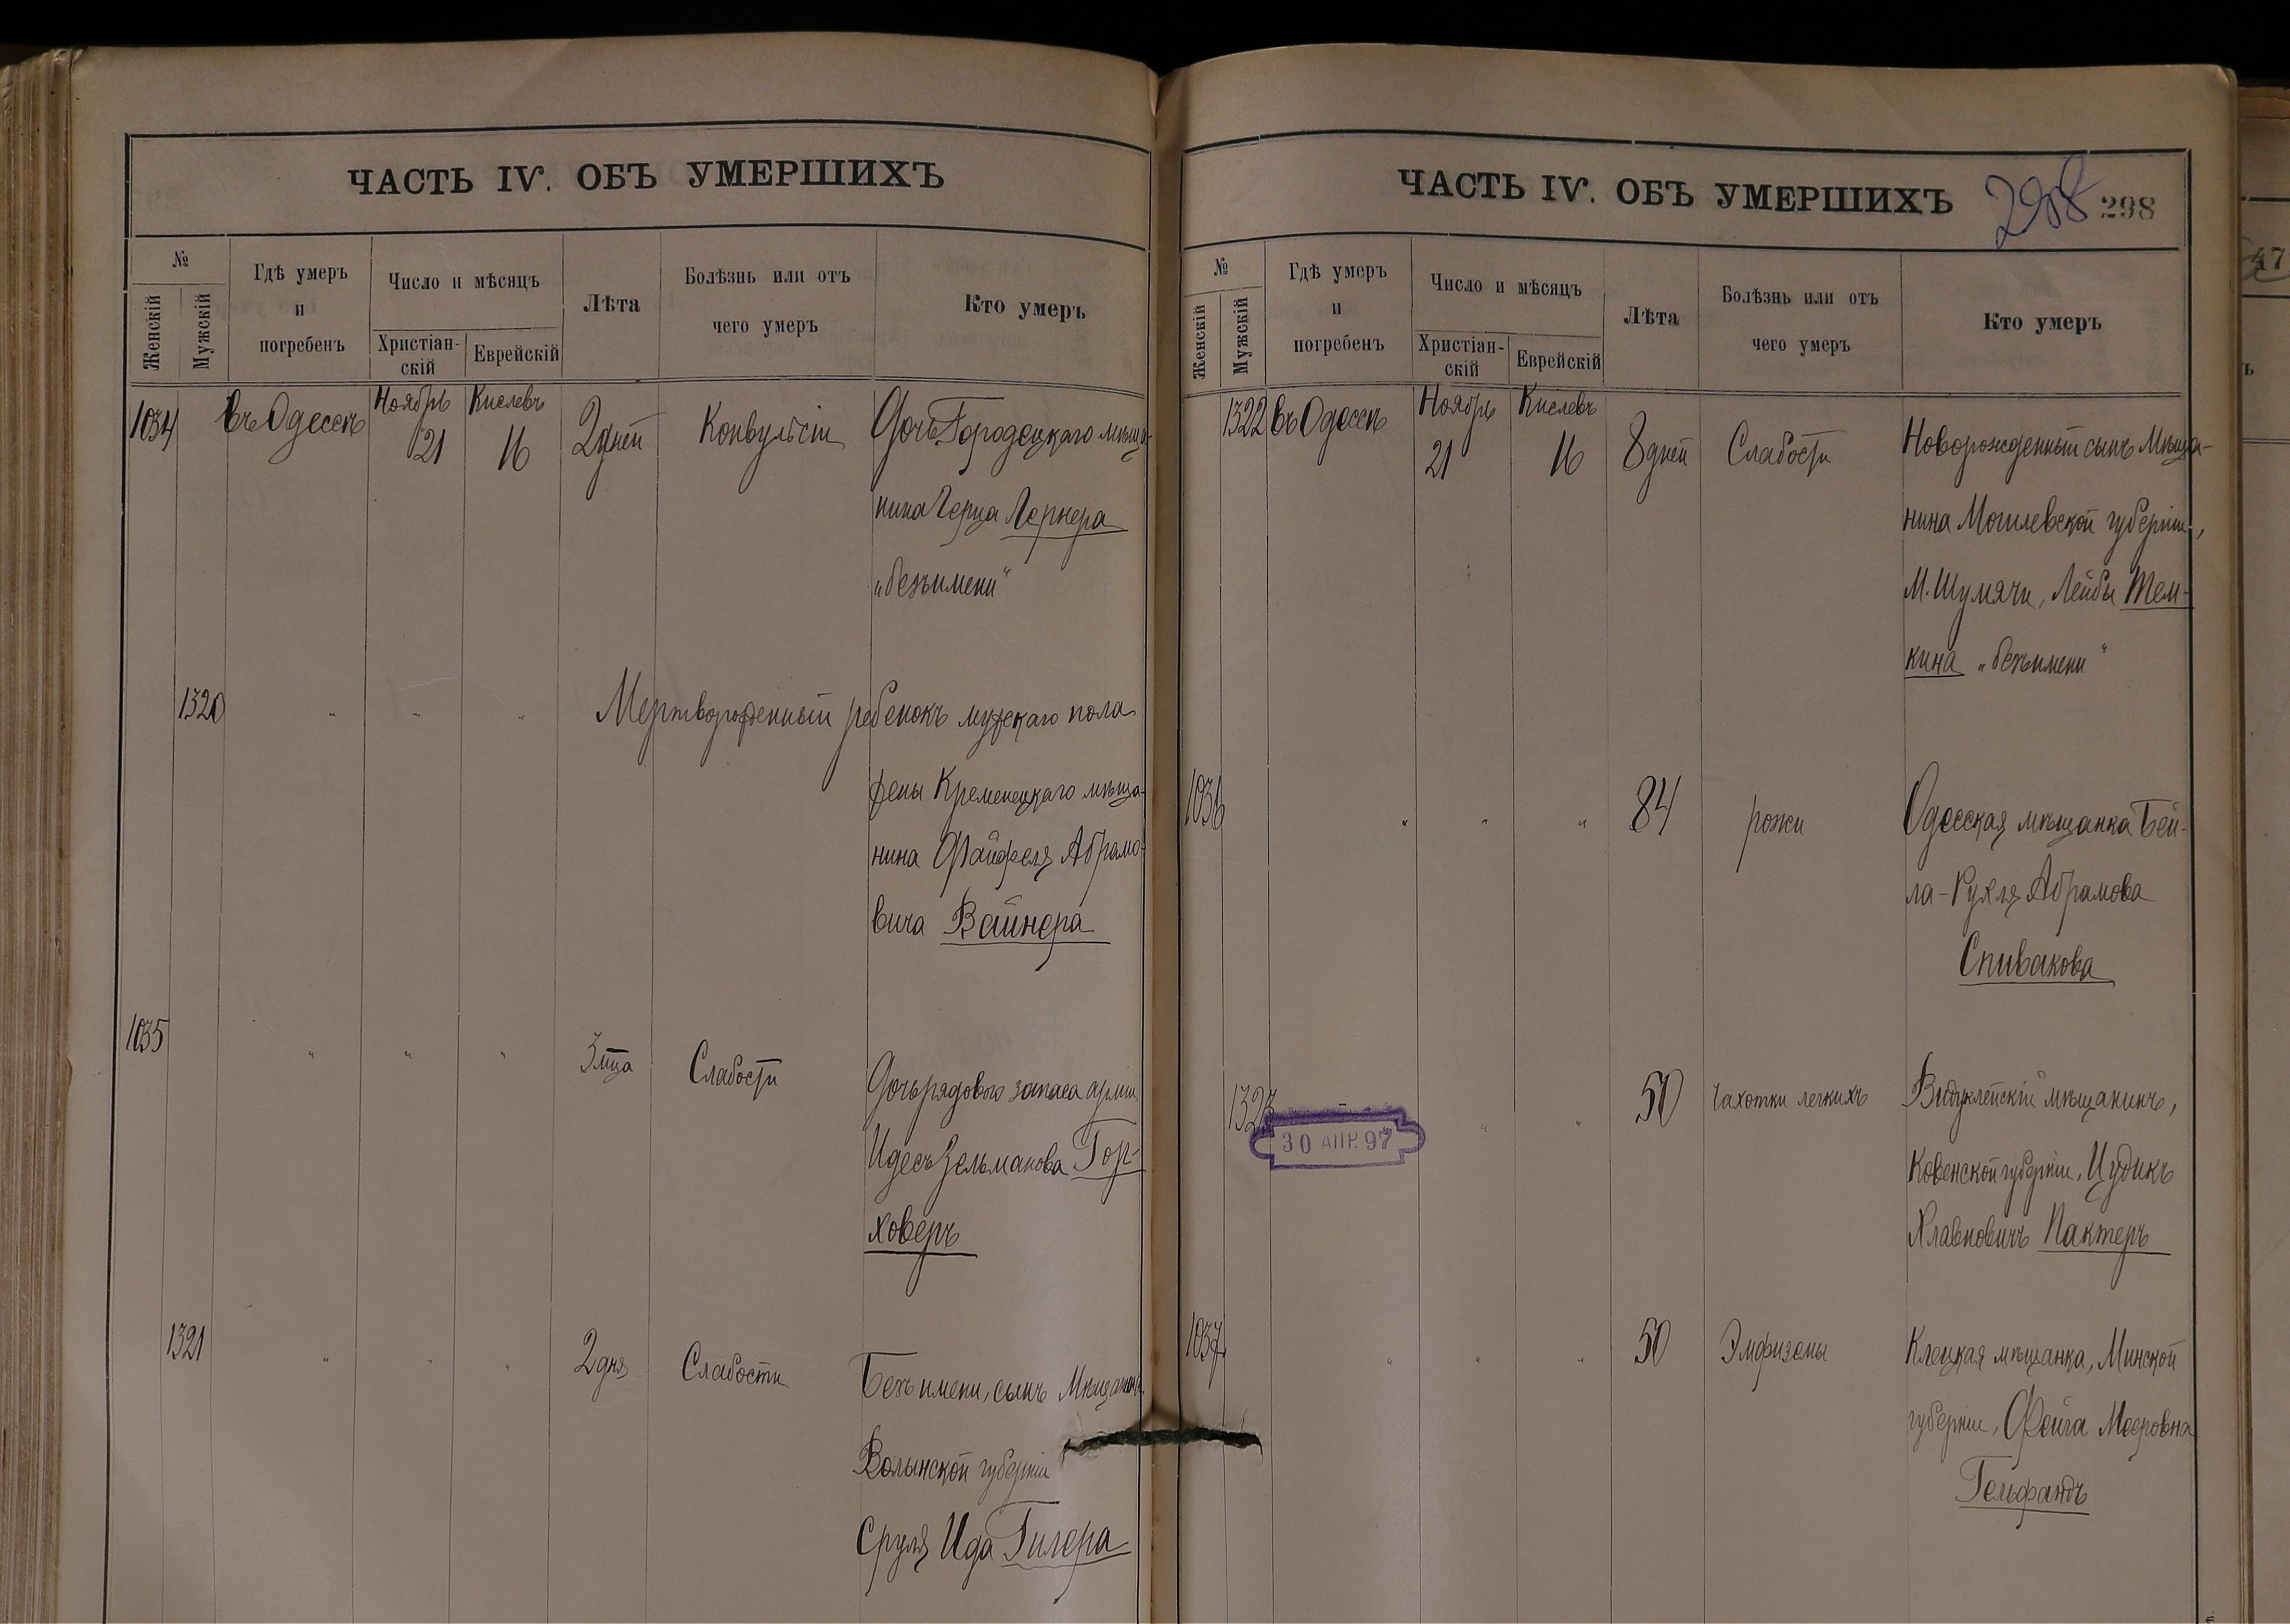 ЧАСТЬ IV. ОБЪ УМЕРШИХЪ
№
Женскій
Мужскій
Гдѣ умеръ
и
погребенъ
Число и мѣсяцъ
Христіан-
скій
Еврейскій
Лѣта
Болѣзнь или отъ
чего умеръ
Кто умеръ
1034 въ Одессѣ Ноябрь 21 Кислевъ 16 2 дней Конвульсіи Дочь Городецкаго мѣща-
нина Герца Лернера
„безъ имени“
1320 " " " Мертворожденный ребенокъ мужскаго пола
жены Кременецкаго мѣща-
нина Файфеля Абрамо-
вича Вайнера
1035 " " " 3 мца Слабости Дочь рядового запаса арміи
Идесъ Зельманова Гор-
ховеръ
1321 " " " 2 дня Слабости Безъ имени, сынъ Мѣщанина
Волынской губерніи
Сруля Ида Гилера
ЧАСТЬ IV. ОБЪ УМЕРШИХЪ
298
298
№
Женскій
Мужскій
Гдѣ умеръ
и
погребенъ
Число и мѣсяцъ
Христіан-
скій
Еврейскій
Лѣта
Болѣзнь или отъ
чего умеръ
Кто умеръ
1322 въ Одессѣ Ноябрь 21 Кислевъ 16 8 дней Слабости Новорожденный сынъ Мѣща-
нина Могилевской губерніи,
М. Шумячи, Лейбы Тем-
кина „безъ имени“
1036 " " " 84 рожи Одесская мѣщанка Бей-
ла-Рухля Абрамова
Спивакова
1323 " " 50 Чахотки легкихъ Видуклейскій мѣщанинъ,
30 АПР. 97
Ковенской губерніи, Цудикъ
Хлавновичъ Пактеръ
1037 " " " 50 Эмфиземы Клецкая мѣщанка, Минской
губерніи, Фейга Мееровна
Гельфандъ
47